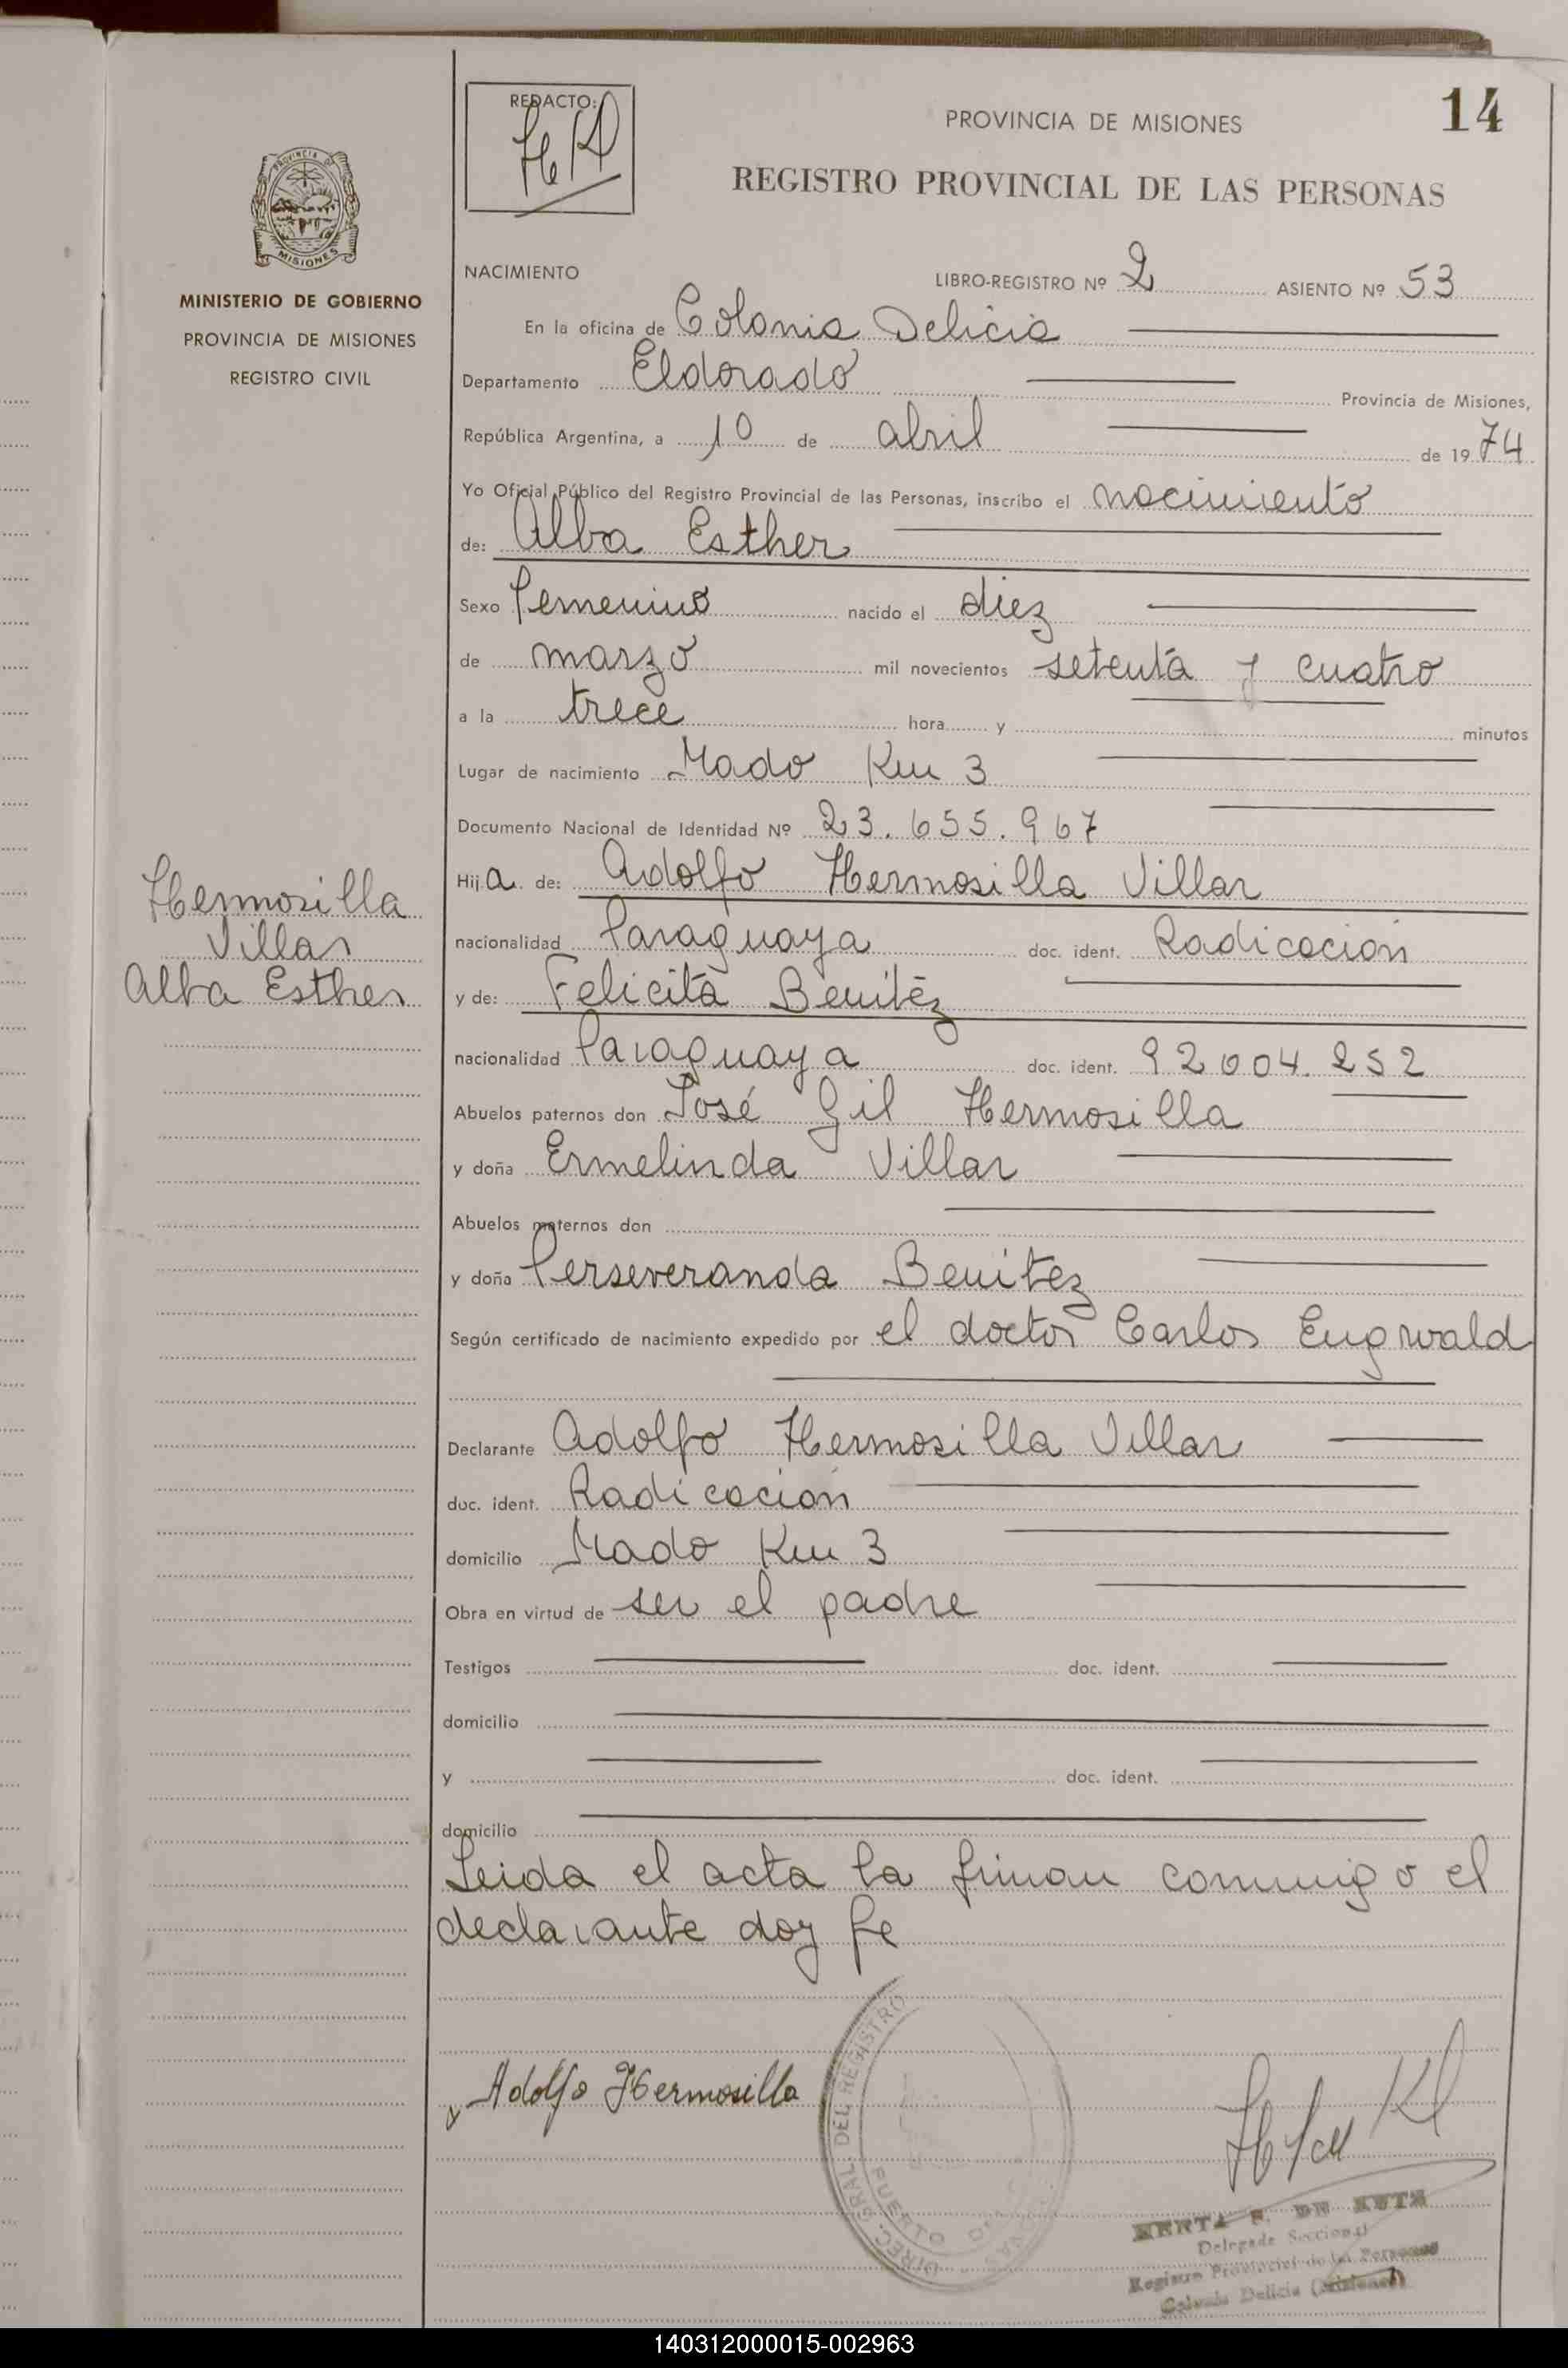 14
REDACTO:
PROVINCIA DE MISIONES
REGISTRO PROVINCIAL DE LAS PERSONAS
PROVINCIA DE
MISIONES
MINISTERIO DE GOBIERNO
PROVINCIA DE MISIONES
REGISTRO CIVIL
NACIMIENTO LIBRO-REGISTRO Nº 2 ASIENTO Nº 53
En la oficina de Colonia Delicia
Departamento Eldorado Provincia de Misiones,
República Argentina, a 10 de abril de 1974
Yo Oficial Público del Registro Provincial de las Personas, inscribo el nacimiento
de: Alba Esther
Sexo femenino nacido el diez
de marzo mil novecientos setenta y cuatro
a la trece hora y minutos
Lugar de nacimiento Mado Km 3
Documento Nacional de Identidad Nº 23.655.967
Hija de: Adolfo Hermosilla Villar
Hermosilla
Villar
Alba Esther
nacionalidad Paraguaya doc. ident. Radicacion
y de: Felicita Benitez
nacionalidad Paraguaya doc. ident. 92004.252
Abuelos paternos don José Gil Hermosilla
y doña Ermelinda Villar
Abuelos maternos don
y doña Perseveranda Benitez
Según certificado de nacimiento expedido por el doctor Carlos Engwald
Declarante Adolfo Hermosilla Villar
doc. ident. Radicacion
domicilio Mado Km 3
Obra en virtud de ser el padre
Testigos doc. ident.
domicilio
y doc. ident.
domicilio
Leida el acta la firman conmigo el
declarante doy fe
Adolfo Hermosilla
DIREC. GRAL. DEL REGISTRO
PUERTO
Delegada Seccional
Registro Provincial de las Personas
Colonia Delicia (Misiones)
140312000015-002963